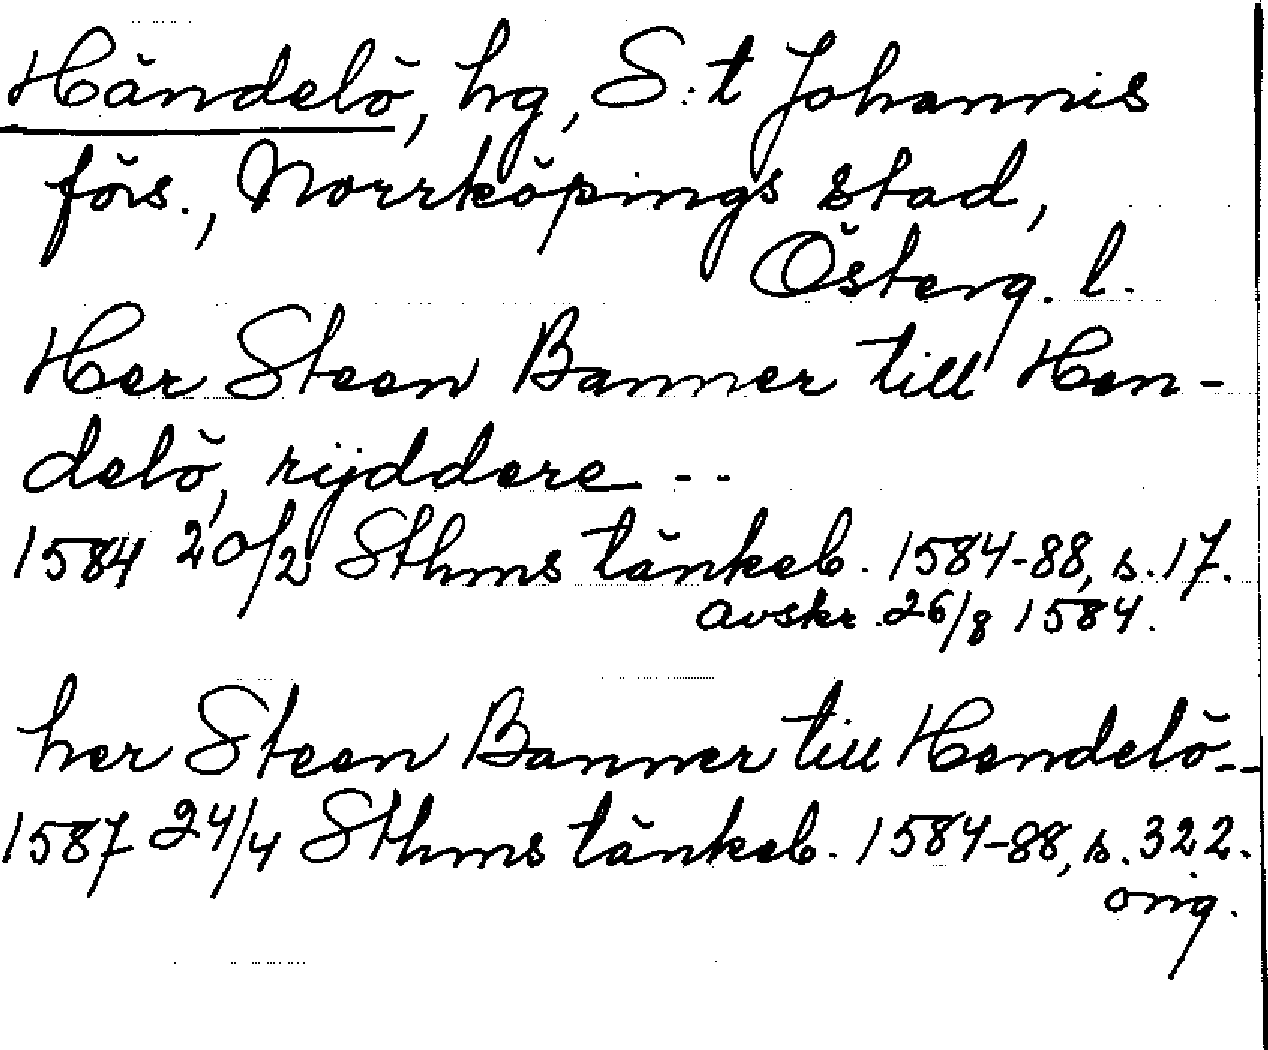 Händelö, hg, S:t Johannis
förs., Norrköpings stad,
Österg. l.
Her Steen Banner till Hen-
delö, rijddere --
1584 20/2 Sthms tänkeb. 1584-88, s. 17.
avskr. 26/8 1584.
her Steen Banner till Hendelö --
1587 24/4 Sthms tänkeb. 1584-88, s. 322.
orig.